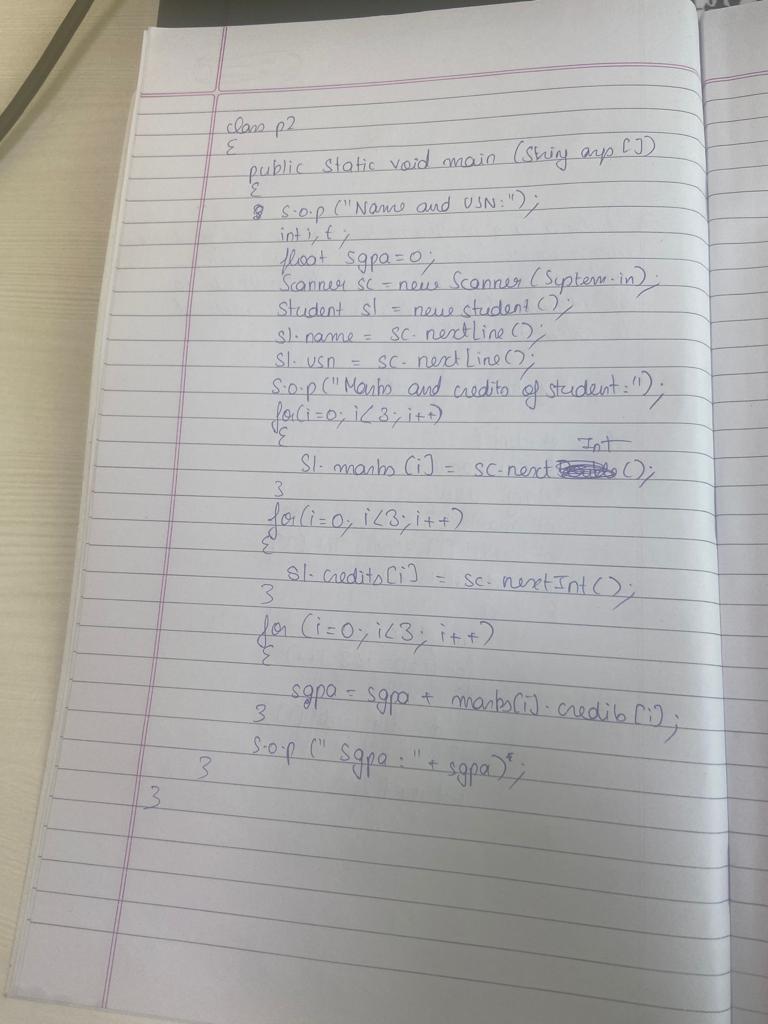 class p2
{
public static void main (String args [])
{
s.o.p ("Name and USN:");
int i, t;
float sgpa=0;
Scanner sc = new Scanner (System.in);
Student s1 = new student ();
s1.name = sc.nextLine ();
s1.usn = sc.nextLine();
s.o.p ("Marks and credits of student:");
for(i=0; i<3; i++)
{
s1.marks [i] = sc.next Int ();
}
for(i=0; i<3; i++)
{
s1.credits[i] = sc.nextInt ();
}
for (i=0; i<3; i++)
{
sgpa = sgpa + marks[i].credits [i];
}
s.o.p (" sgpa : " + sgpa);
}
}